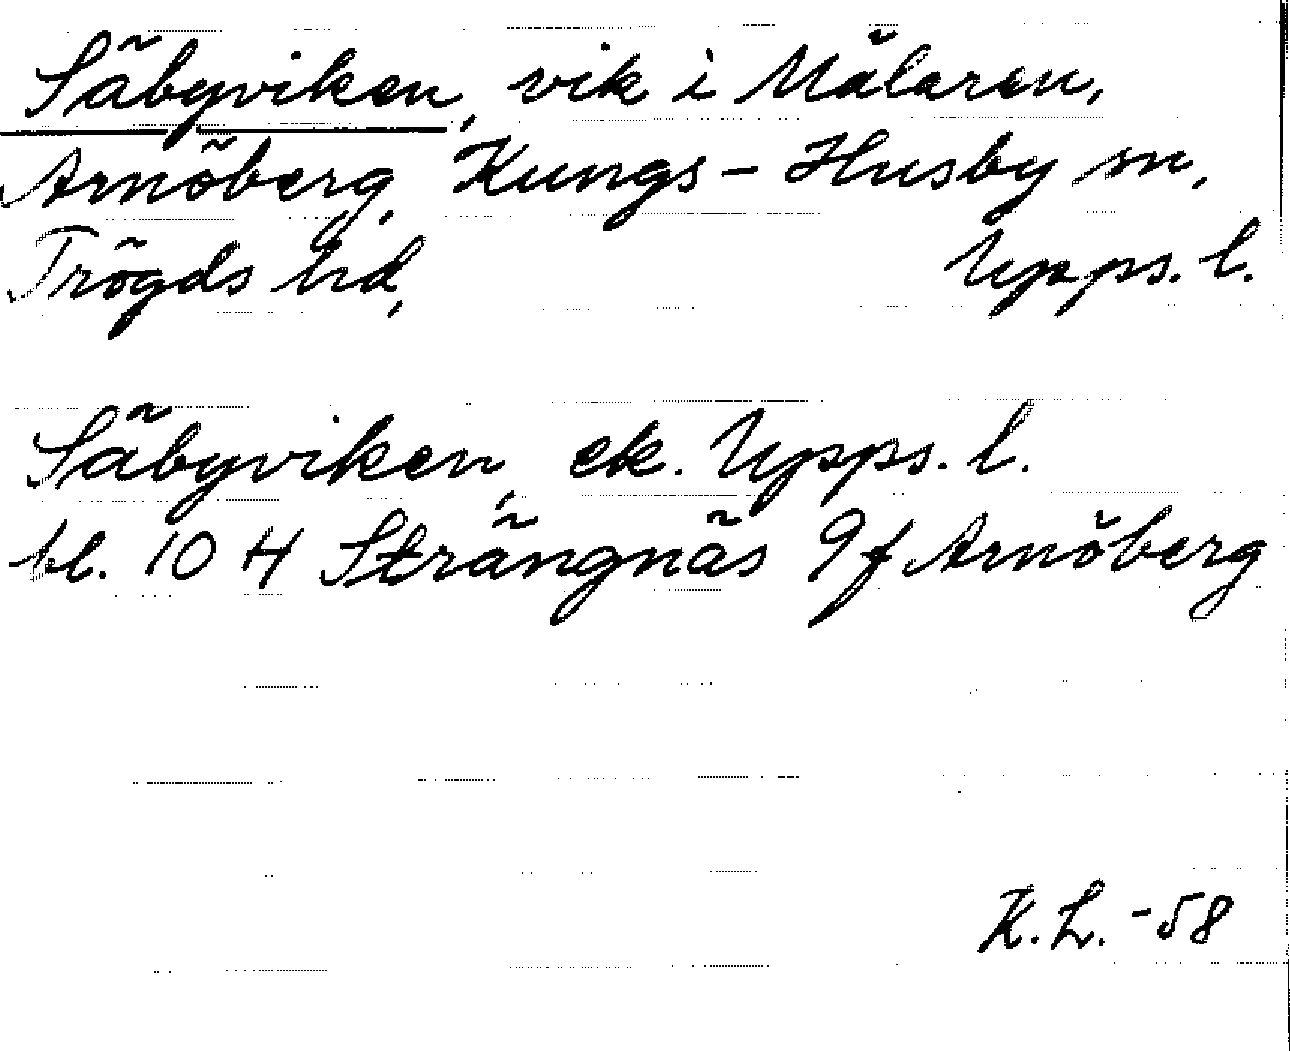 Säbyviken, vik i Mälaren,
Arnöberg, Kungs-Husby sn,
Trögds hd, Upps. l.
Säbyviken, ek. Upps. l.
bl. 10 H Strängnäs 9f Arnöberg
K.L. -58